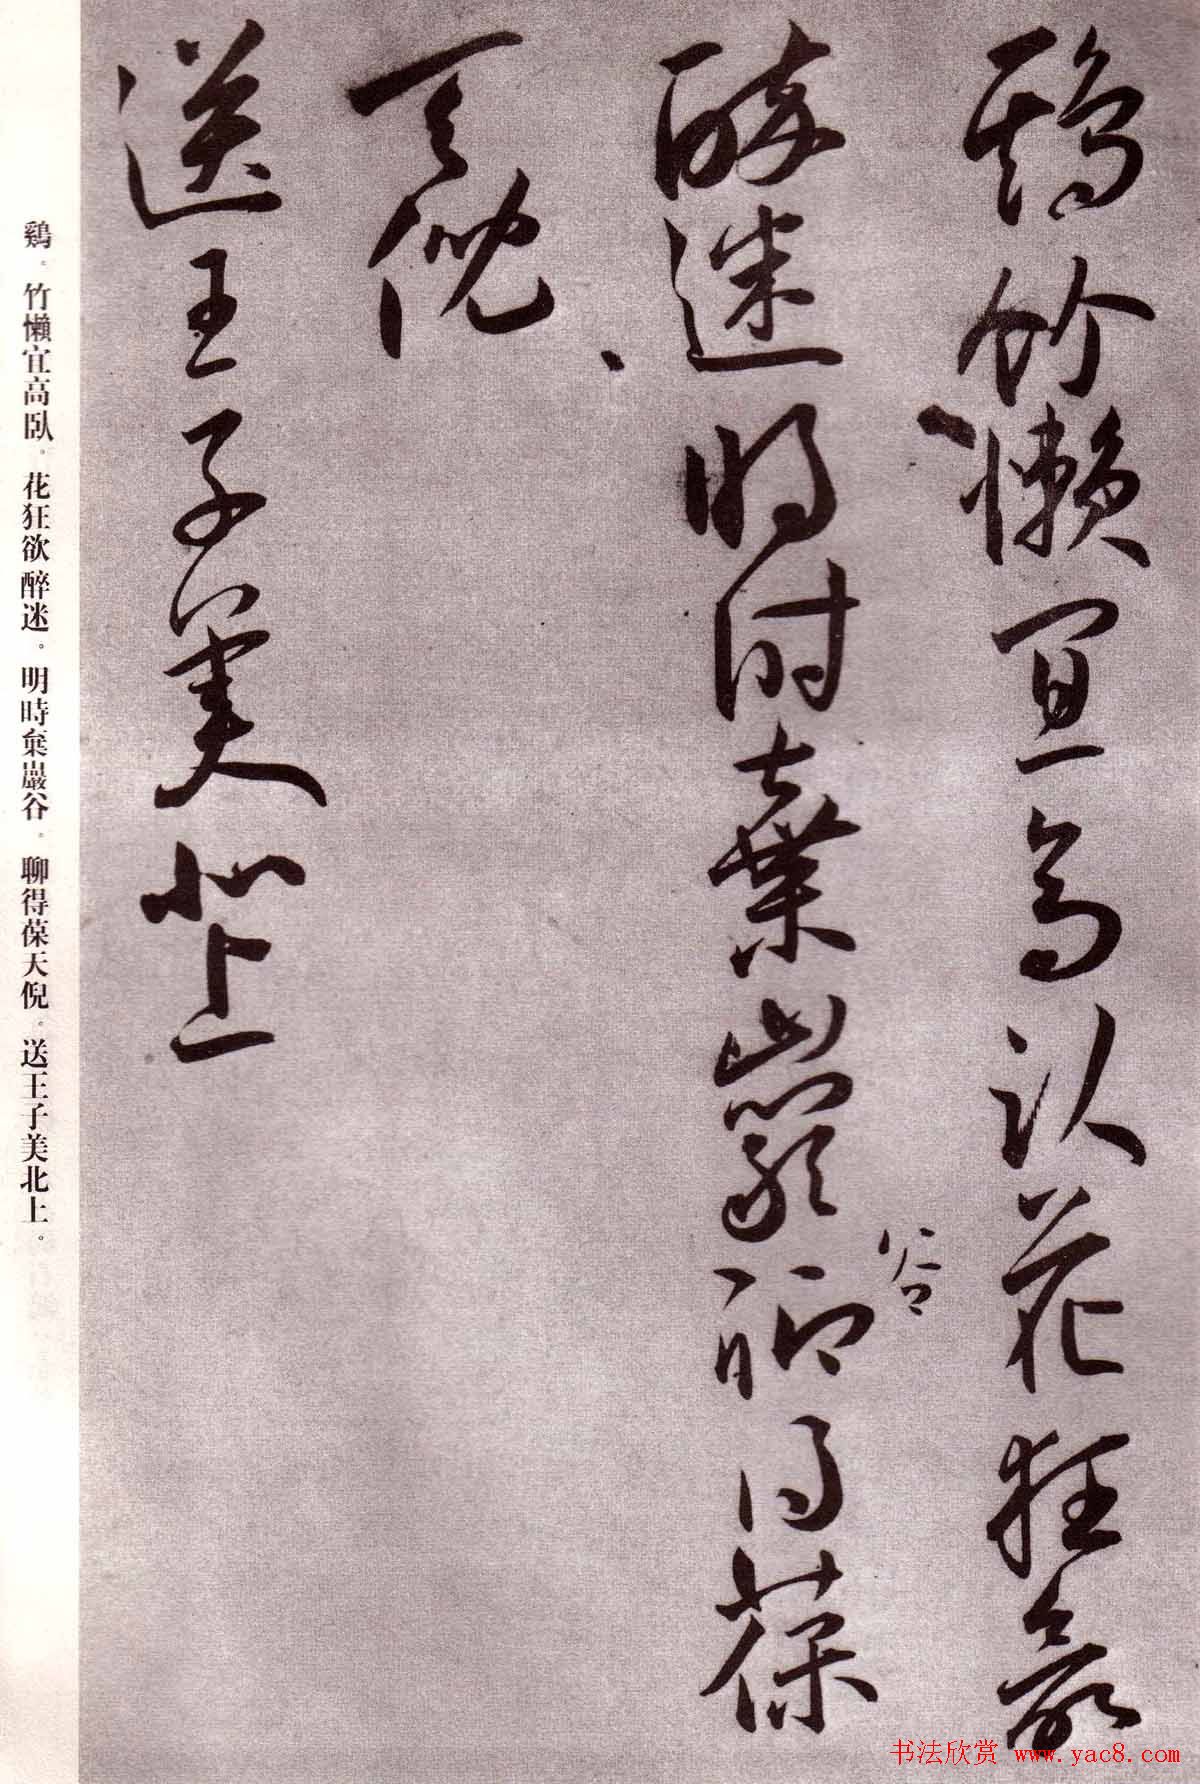 鶏竹懶宜高臥花狂欲
醉迷明時棄巖谷聊得葆
天倪
送王子美北上
鷄。竹懶宜高臥。花狂欲醉迷。明時棄巖谷。聊得葆天倪。送王子美北上。
书法欣赏 www.yac8.com